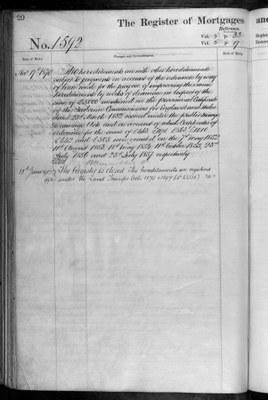 20
The Register of Mortgages
Reference.
Vol. 5 p. 33.
Vol. 5 p. 17.
No. 1592
Date of Entry.
Charges and Incumbrances.
Date of Entry.
Nov. 17th 1870. The hereditaments with other hereditaments
subject to payments on account of the advances by way
of loan made for the purpose of improving the same
hereditaments by works of drainage in respect of the
sum of £5000 mentioned in the provisional Certificate
of the Inclosure Commissioners for England and Wales
dated 23rd March 1852 issued under the public drainage
advances Acts and on account of which Certificates of
advances for the sums of
were issued on the 7th May 1852
11th August 1853 11th May 1854 11th October 1855, 23rd
July 1856 and 23rd July 1857 respectively
The Register is closed. The hereditaments are registered
under the Land Transfer Acts 1875 & 1897